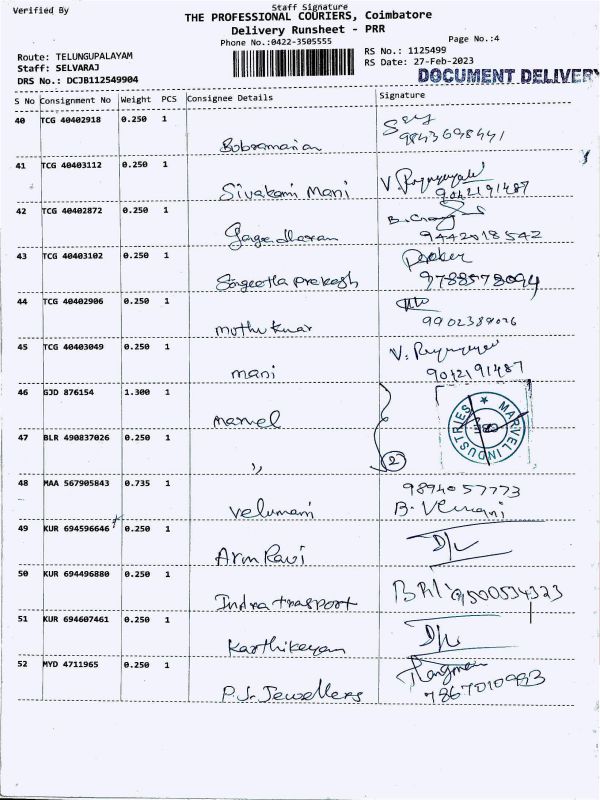 Verified By
Staff Signature
THE PROFESSIONAL COURIERS, Coimbatore
Delivery Runsheet - PRR
Phone No.:0422-3505555
Page No.:4
Route: TELUNGUPALAYAM
Staff: SELVARAJ
DRS No.: DCJB112549904
RS No.: 1125499
RS Date: 27-Feb-2023
DOCUMENT DELIVERY
S No Consignment No Weight PCS Consignee Details Signature
40 TCG 40402918 0.250 1
9843698441
41 TCG 40403112 0.250 1
Sivakami Mani
9042191487
42 TCG 40402872 0.250 1
9442018542
43 TCG 40403102 0.250 1
Sangeetha prakash
9788578094
44 TCG 40402906 0.250 1
muthu kumar
45 TCG 40403049 0.250 1
mani
9042191487
46 GJD 876154 1.300 1
marvel
MARVEL INDUSTRIES
CBE
47 BLR 490837026 0.250 1
,,
2
48 MAA 567905843 0.735 1
velumani
9894057773
49 KUR 694596646 0.250 1
Arun Ravi
50 KUR 694496880 0.250 1
Indra trasport
9500534323
51 KUR 694607461 0.250 1
Karthikeyan
52 MYD 4711965 0.250 1
P.J. Jewellers
7867010983